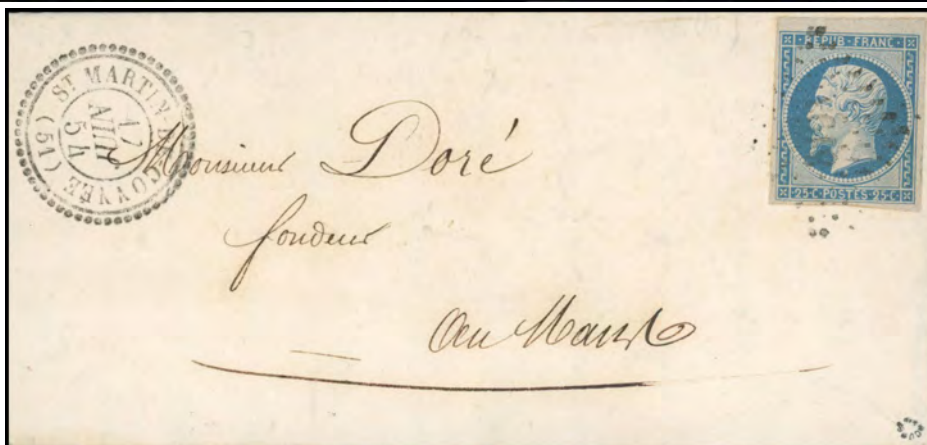 ST MARTIN-LACOVÉE (51)
17
AVR.
54
REPUB-FRANC
25C-POSTES-25C
Monsieur Doré
fondeur
au Mans